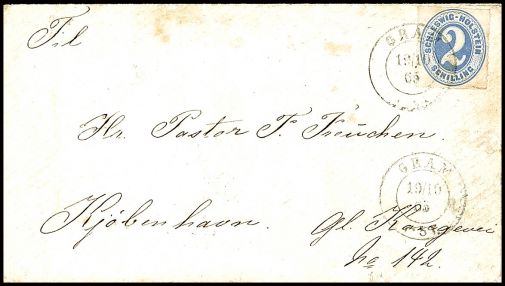 Til
GRAM
19/10
65
SCHLESWIG-HOLSTEIN
2
SCHILLING
Hr. Pastor F. Feuchen.
GRAM
19/10
65
Kjöbenhavn. Gl. Kongevei
No 142.